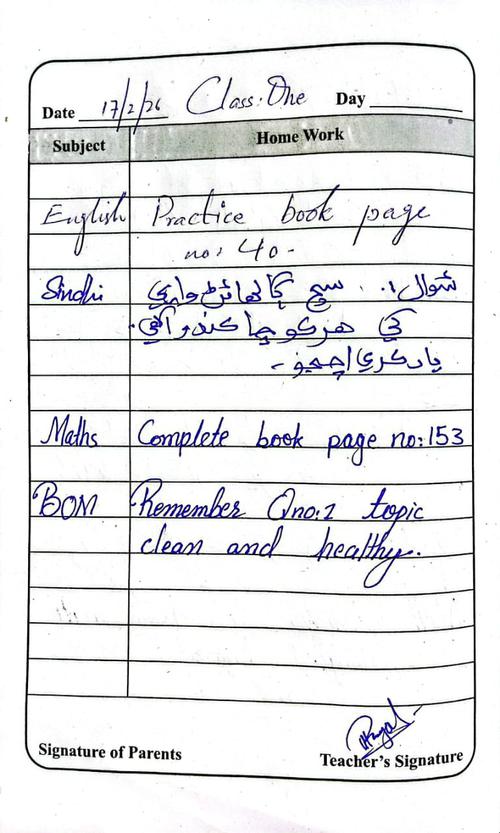 Date 17/2/26 Class: One Day
Subject Home Work
English Practice book page
no: 40-
Sindhi سوال 1. سچ ڳالهائڻ واري
کي هرڪو ڇا ڪندو آهي.
ياد ڪري اچجو -
Maths Complete book page no: 153
BOM Remember Qno:1 topic
clean and healthy.
Signature of Parents Teacher's Signature